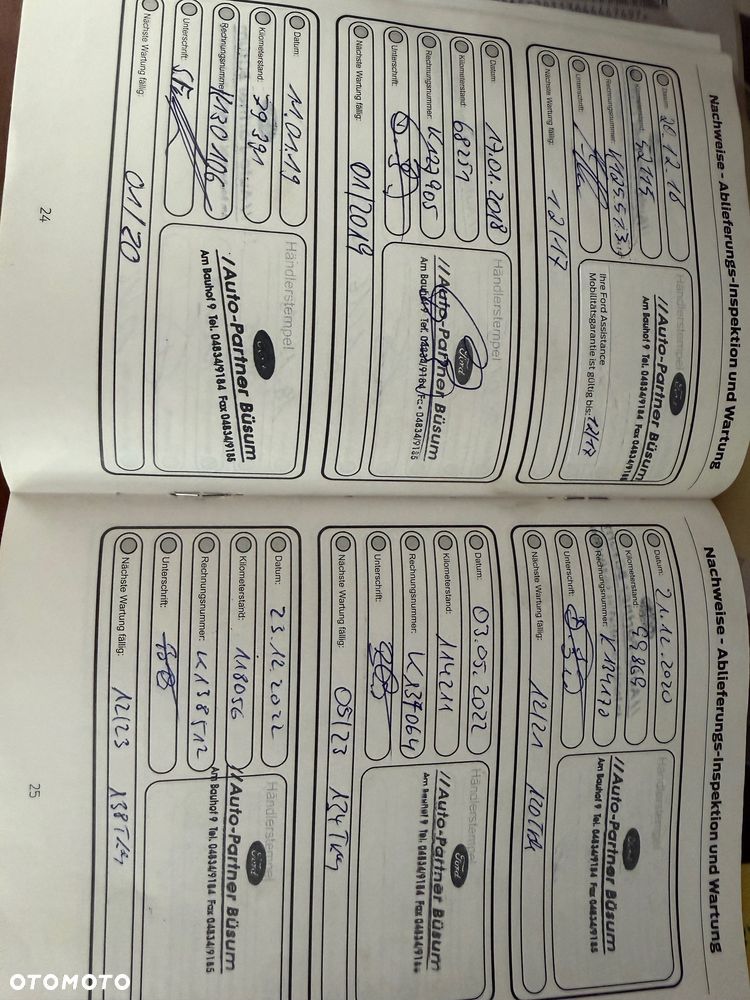 Nachweise - Ablieferungs-Inspektion und Wartung
Datum: 20.12.16
Kilometerstand: 52115
Rechnungsnummer:
Unterschrift:
Nächste Wartung fällig: 12/17
Händlerstempel
Ford
//Auto-Partner Büsum
Am Bauhof 9 Tel. 04834/9184 Fax 04834/9185
Ihre Ford Assistance
Mobilitätsgarantie ist gültig bis: 12/17
Datum: 17.01.2018
Kilometerstand: 68251
Rechnungsnummer: K127905
Unterschrift:
Nächste Wartung fällig: 01/2019
Händlerstempel
Ford
//Auto-Partner Büsum
Am Bauhof 9 Tel. 04834/9184 Fax 04834/9185
Datum: 11.01.19
Kilometerstand: 79391
Rechnungsnummer: K130106
Unterschrift:
Nächste Wartung fällig: 01/20
Händlerstempel
//Auto-Partner Büsum
Am Bauhof 9 Tel. 04834/9184 Fax 04834/9185
24
Nachweise - Ablieferungs-Inspektion und Wartung
Datum: 21.12.2020
Kilometerstand: 99868
Rechnungsnummer: K134170
Unterschrift:
Nächste Wartung fällig: 12/21 120TKM
Händlerstempel
//Auto-Partner Büsum
Am Bauhof 9 Tel. 04834/9184 Fax 04834/9185
Datum: 03.05.2022
Kilometerstand: 114211
Rechnungsnummer: K137064
Unterschrift:
Nächste Wartung fällig: 05/23 134TKm
Händlerstempel
Ford
//Auto-Partner Büsum
Am Bauhof 9 Tel. 04834/9184 Fax 04834/9185
Datum: 23.12.2022
Kilometerstand: 118056
Rechnungsnummer: K138512
Unterschrift:
Nächste Wartung fällig: 12/23 138TKm
Händlerstempel
Ford
//Auto-Partner Büsum
Am Bauhof 9 Tel. 04834/9184 Fax 04834/9185
25
OTOMOTO